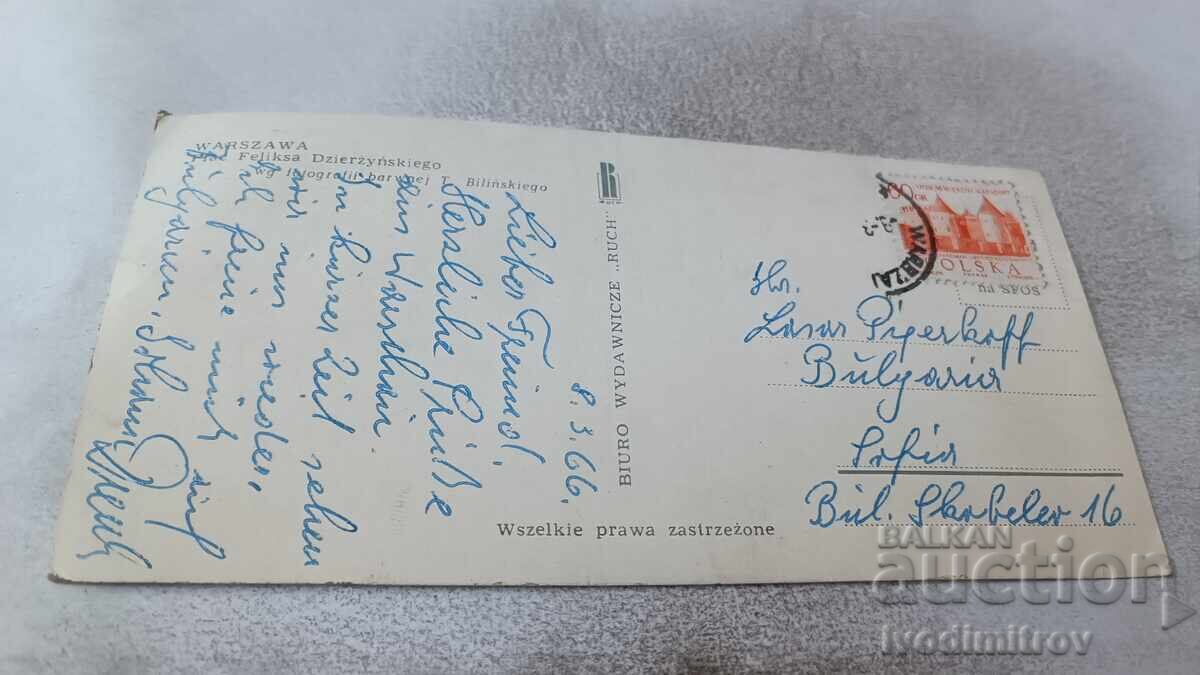 WARSZAWA
Plac Feliksa Dzierżyńskiego
wg fotografii barwnej T. Bilińskiego
8.3.66.
Lieber Freund,
Herzliche Grüße
aus Warschau.
In kurzer Zeit sehen
wir uns wieder.
Ich freue mich auf
Bulgarien.
BIURO WYDAWNICZE „RUCH"
Wszelkie prawa zastrzeżone
60
GR
POLSKA
WARSZA
na SFOS
Hr.
Lasar Piperkoff
Bulgaria
Sofia
Bul. Skobelev 16
BALKAN
auction
ivodimitrov